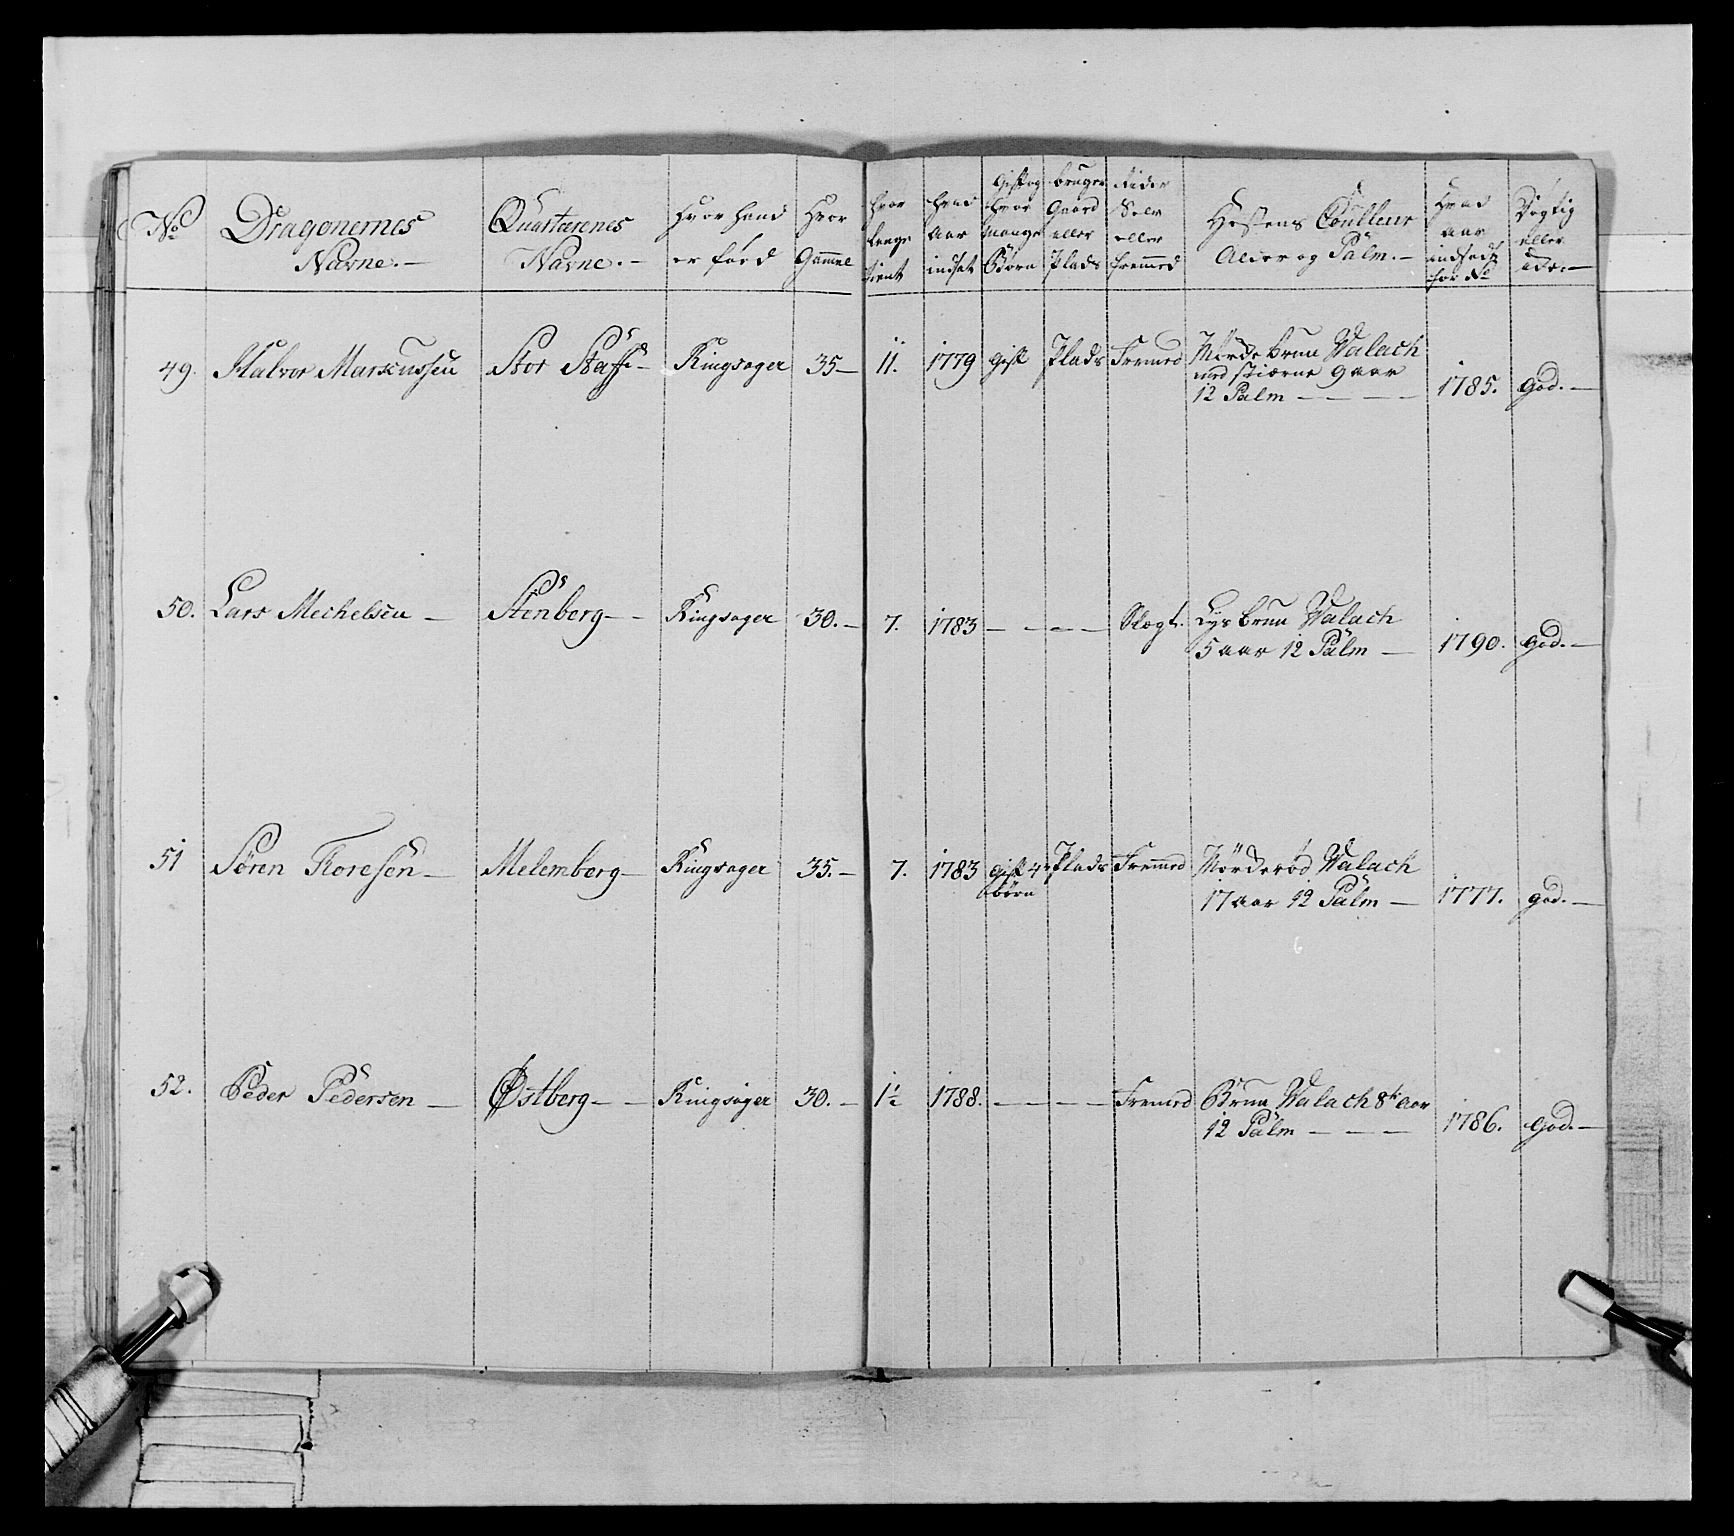 No Dragonernes Navne.— Quarterenes Navne.— Hvor hand er fød Hvor Gammel hvor lenge tient hvad Aar indsat Gift og hvor mange Børn bruger Gaard eller Plads Rider Selv eller fremmed Hestens Coulleur Alder og Palm.— Hvad aar indsadt for No Dygtig eller
49. Halvor Marcussen Stor Staff— Ringsager 35— 11. 1779 Gift Plads Fremed Mørkebrun Valach
med stierne 9 aar
12 Palm — — — — 1785. God.—
50. Lars Mechelsen — Stenberg— — Ringsager 30.— 7. 1783 — — — — Slægt. Lysbrun Valach
5 aar 12 Palm — 1790. God.—
51 Søren Thoresen— Melemberg— Ringsager 35.— 7. 1783 Gift 4 Plads Fremed Mørkerød Valach
børn
17 aar 12 Palm — 1777. God.—
52. Peder Pedersen — Østberg— — Ringsager 30. — 1½ 1788. — — — — Fremed Brun Valach 8te Aar
12 Palm — — — 1786. God.—